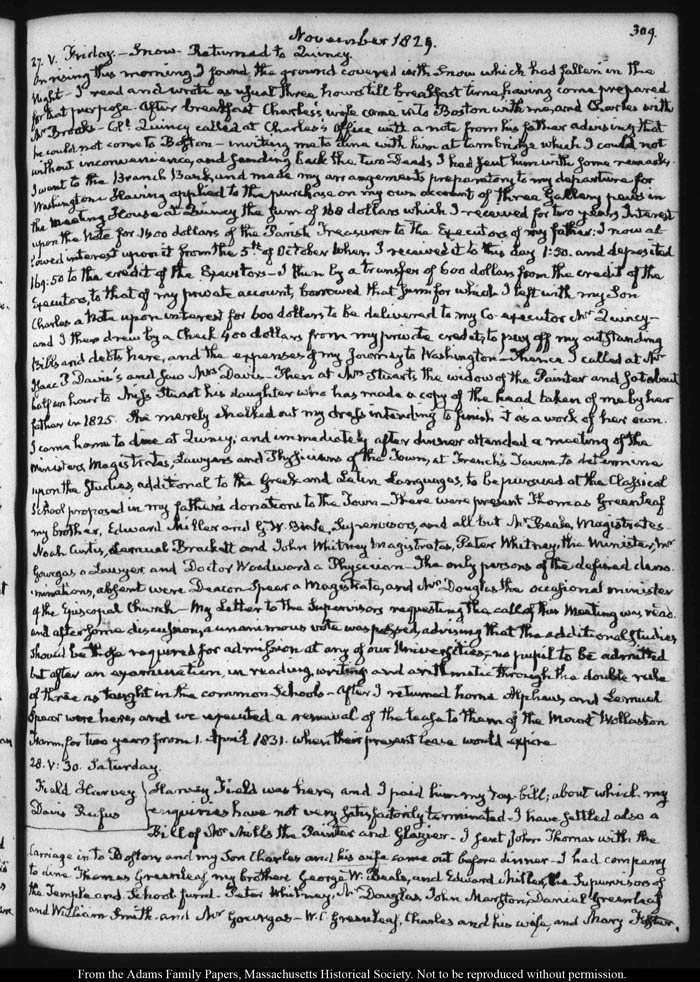 309.
November 1829.
27. V. Friday. – Snow – Returned to Quincy.
On rising this morning I found the ground covered with Snow which had fallen in the
Night – I read and wrote as usual three hours till breakfast time, having come prepared
for that purpose. After breakfast Charles's wife came into Boston with me, and Charles with
Mr Brooks – Coll Quincy called at Charles's Office with a note from his father advising that
he could not come to Boston – inviting me to dine with him at Cambridge which I could not
without inconvenience, and sending back the two Deeds I had sent him with some remarks.
I went to the Branch Bank, and made my arrangements preparatory to my departure for
Washington. Having applied to the purchase on my own account of three Gallery pews in
the Meeting House at Quincy the sum of 168 dollars which I received for two years Interest
upon the Note for 1400 dollars of the Parish Treasurer to the Executors of my father; I now al-
lowed interest upon it from the 5th of October when I received it to this day 1:50. and deposited
169:50 to the credit of the Executors – I then by a transfer of 600 dollars from the credit of the
Executors, to that of my private account, borrowed that sum for which I left with my Son
Charles a Note upon interest for 600 dollars to be delivered to my Co-executor Mr Quincy –
and I then drew by a Check 400 dollars from my private credit, to pay off my outstanding
Bills and debts here, and the expenses of my Journey to Washington – Thence I called at Mr
Isaac P Davis's and saw Mrs Davis – Then at Mrs Stuart's the widow of the Painter and sat about
half an hour to Miss Stuart his daughter who has made a copy of the head taken of me by her
father in 1825. She merely chalked out my dress intending to finish it as a work of her own.
I came home to dine at Quincy; and immediately after dinner attended a meeting of the
Ministers, Magistrates, Lawyers and Physicians of the Town, at French's Tavern, to determine
upon the Studies, additional to the Greek and Latin Languages, to be pursued at the Classical
School proposed in my father's donations to the Town – There were present Thomas Greenleaf
my brother, Edward Miller and G. W. Beale, Supervisors, and all but Mr Beale, Magistrates –
Noah Curtis, Lemuel Brackett and John Whitney Magistrates, Peter Whitney, the Minister, Mr
Gourgas a Lawyer and Doctor Woodward a Physician – The only persons of the defined deno-
minations, absent were Deacon Spear a Magistrate, and Mr Douglas the occasional minister
of the Episcopal Church – My Letter to the Supervisors requesting the call of this Meeting was read
and after some discussion, a unanimous vote was passed, advising that the additional Studies
should be those required for admission at any of our Universities; – no pupil to be admitted
but after an examination, in reading, writing and arithmetic through the double rule
of three as taught in the common Schools – After I returned home Alpheus, and Lemuel
Spear were here, and we executed a renewal of the lease to them of the Mount Wollaston
Farm, for two years from 1. April 1831. when their present lease would expire
28. V: 30. Saturday.
Field Harvey
Davis Rufus
Harvey Field was here, and I paid him my tax bill; about which my
enquiries have not very satisfactorily terminated – I have settled also a
Bill of Mr Mills the Painter and Glazier – I sent John Thomas with the
Carriage in to Boston, and my Son Charles and his wife came out before dinner – I had company
to dine Thomas Greenleaf, my brother, George W. Beale, and Edward Miller, the Supervisors of
the Temple and School fund – Peter Whitney, Mr Douglas, John Marston, Daniel Greenleaf
and William Smith – and Mr Gourgas – W. C. Greenleaf, Charles and his wife, and Mary Foster,
From the Adams Family Papers, Massachusetts Historical Society. Not to be reproduced without permission.